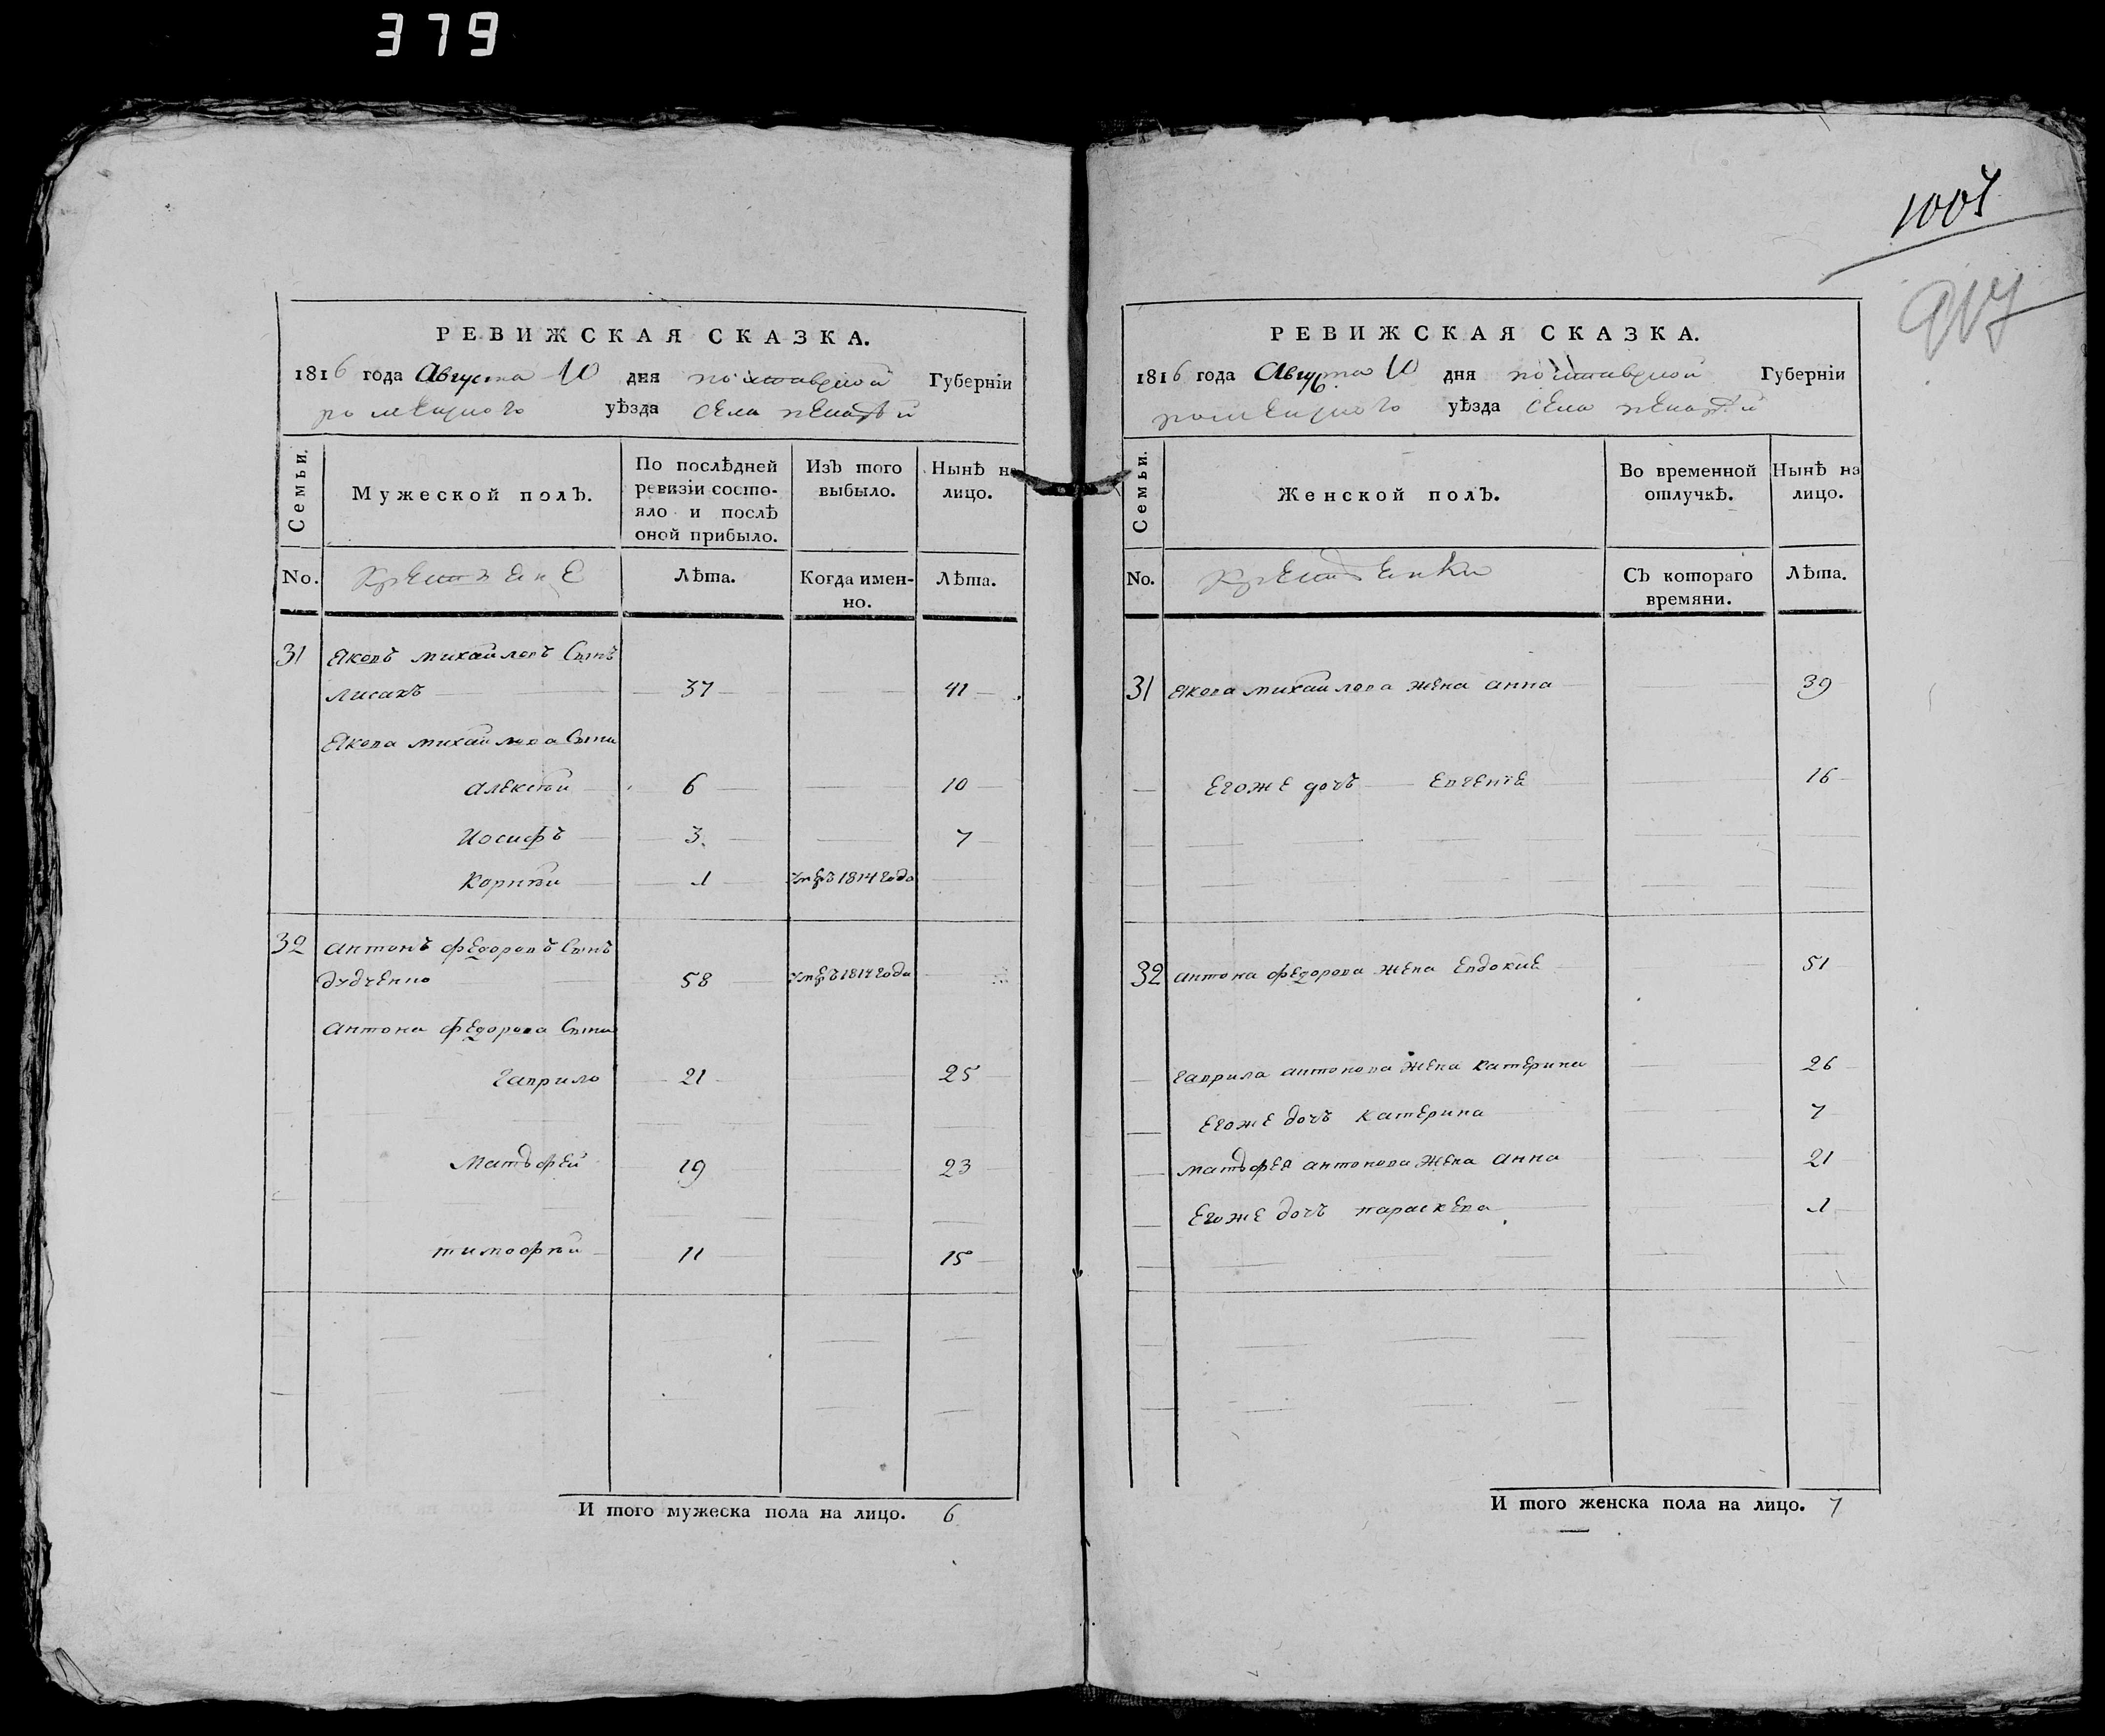 379
1007
917
РЕВИЖСКАЯ СКАЗКА.
1816 года Августа 10 дня полтавской Губерніи
роменского уѣзда села
Семьи.
Мужеской полъ.
По послѣдней ревизіи состо-
яло и послѣ
оной прибыло.
Изъ того
выбыло.
Нынѣ на
лицо.
No.
Крестьяне
Лѣта.
Когда имен-
но.
Лѣта.
31 Яковъ михайловъ Сынъ
лисакъ 37 41
Якова михайлова Сыны
алексѣй 6 10
Иосифъ 3 7
Корнѣй 1 умре 1814 года
32 антонъ федоровъ Сынъ
дудченко 58 умре 1814 года
антона федорова Сыны
гаврило 21 25
Матвфей 19 23
тимофѣй 11 15
И того мужеска пола на лицо. 6
РЕВИЖСКАЯ СКАЗКА.
1816 года Августа 10 дня полтавской Губерніи
роменского уѣзда села
Семьи.
Женской полъ.
Во временной
отлучкѣ.
Нынѣ на
лицо.
No.
Крестьянки
Съ котораго
времяни.
Лѣта.
31 Якова михайлова жена анна 39
Егоже дочъ Евгение 16
32 антона федорова жена Евдокие 51
гаврила антонова жена катерина 26
Егоже дочъ катерина 7
матвфея антонова жена анна 21
Егоже дочъ параскева 1
И того женска пола на лицо. 7